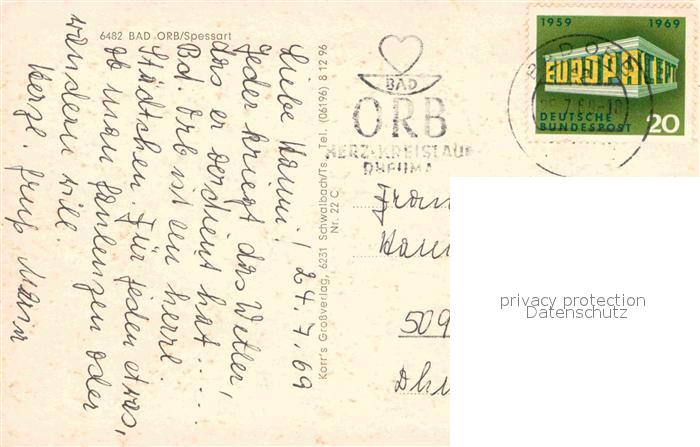 6482 BAD ORB/Spessart
Liebe Hanni! 24.7.69
Jeder kriegt das Wetter,
das er verdient hat....
Bd. Orb ist ein herrl.
Städtchen. Für jeden etwas,
ob man faulenzen oder
wandern will.
Herzl. Gruß
Korr's Großverlag, 6231 Schwalbach/Ts. Tel. (06196) 8 12 96
Nr. 22 C
BAD
ORB
HERZ-KREISLAUF
RHEUMA
1959 1969
EUROPA CEPT
DEUTSCHE
BUNDESPOST 20
BAD ORB
509
privacy protection
Datenschutz